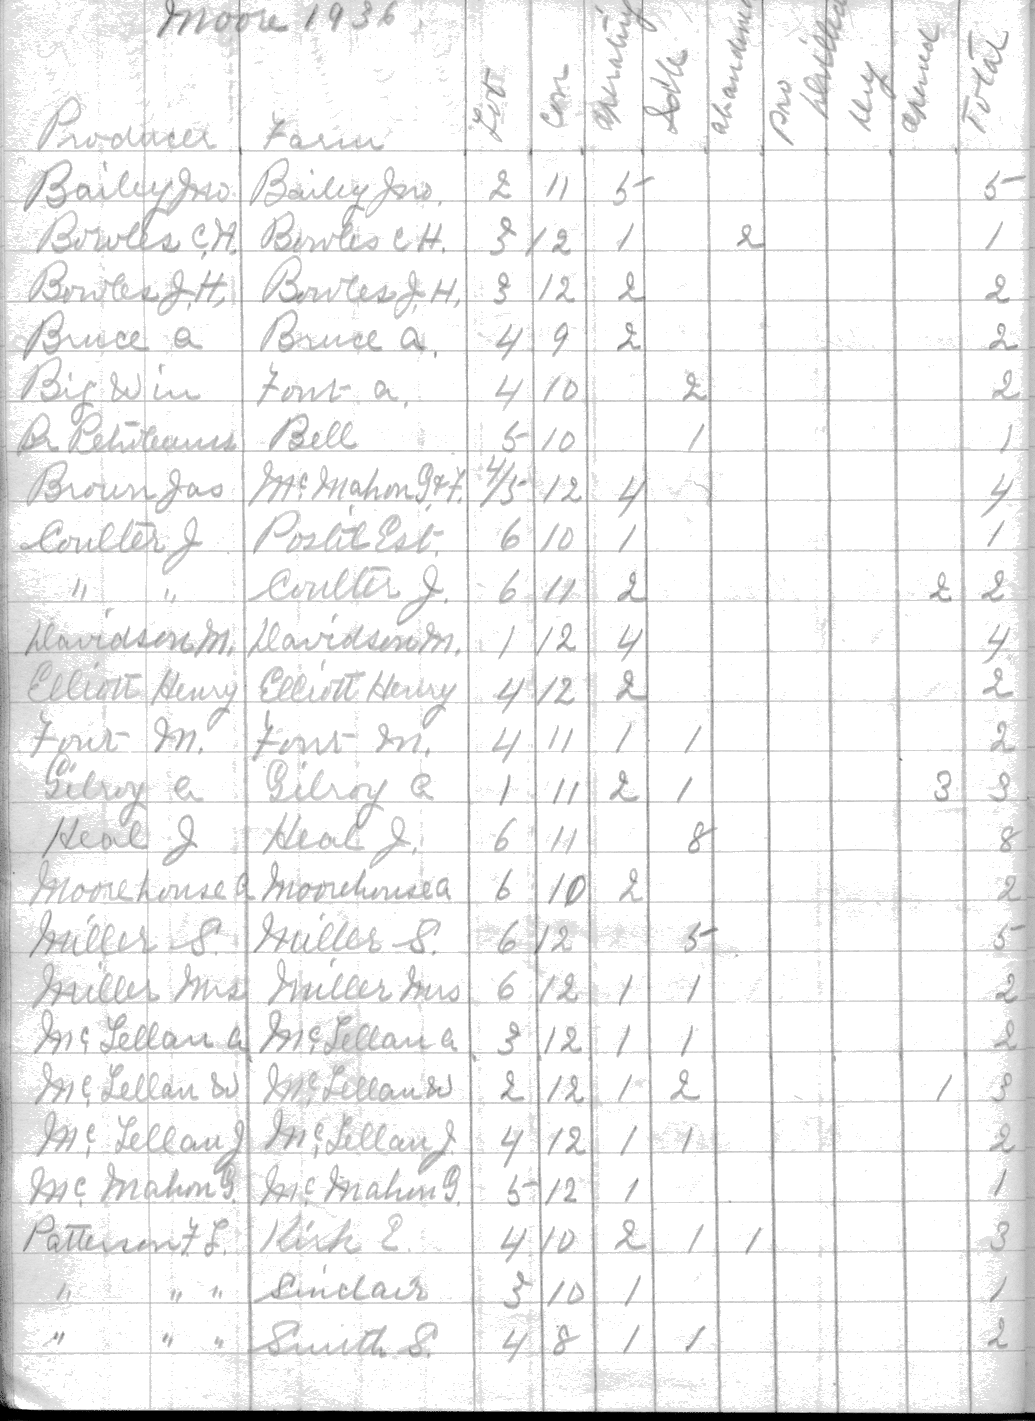 Moore 1936.
Producer Farm Lot Con Operating Idle abandoned pro Drilled Dry opened Total
Bailey Jno. Bailey Jno. 2 11 5 5
Bowles C.H. Bowles C H. 3 12 1 2 1
Bowles J.H. Bowles J.H. 3 12 2 2
Bruce a Bruce a. 4 9 2 2
Big Win Font a. 4 10 2 2
Bell 5 10 1 1
Brown Jas Mc Mahon G & F. 4/5 12 4 4
Coulter J Est. 6 10 1 1
" " Coulter J. 6 11 2 2 2
Davidson M. Davidson M. 1 12 4 4
Elliott Henry Elliott Henry 4 12 2 2
Font M. Font M. 4 11 1 1 2
Gilroy a Gilroy a 1 11 2 1 3 3
Heal J Heal J. 6 11 8 8
Moorehouse a Moorehouse a 6 10 2 2
Miller S. Miller S. 6 12 5 5
Miller Mrs Miller Mrs 6 12 1 1 2
Mc Lellan a Mc Lellan a 3 12 1 1 2
Mc Lellan W Mc Lellan W 2 12 1 2 1 3
Mc Lellan J Mc Lellan J. 4 12 1 1 2
Mc Mahon G. Mc Mahon G. 5 12 1 1
Patterson F. L. Kirk E. 4 10 2 1 1 3
" " " Sinclair 3 10 1 1
" " " Smith S. 4 8 1 1 2